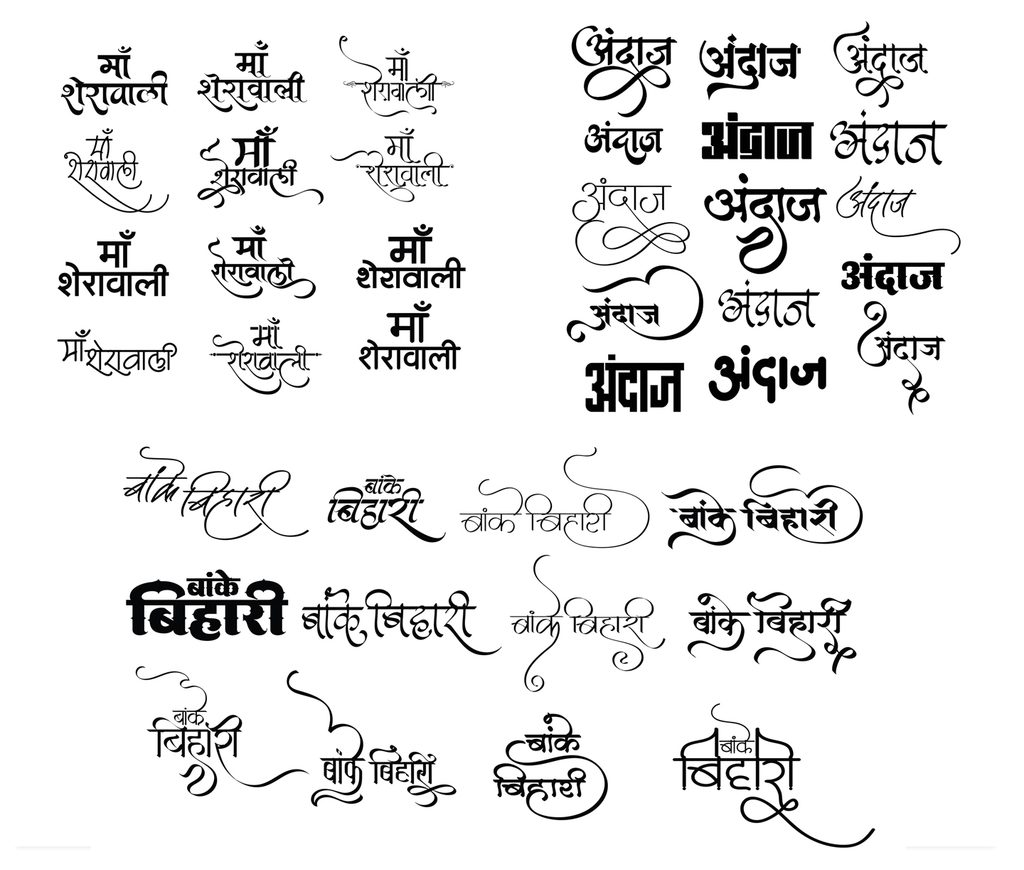 माँ
शेरावाली
माँ
शेरावाली
माँ
शेरावाली
माँ
शेरावाली
माँ
शेरावाली
माँ
शेरावाली
माँ
शेरावाली
माँ
शेरावाली
माँ
शेरावाली
माँ शेरावाली
माँ
शेरावाली
माँ
शेरावाली
अंदाज
अंदाज
अंदाज
अंदाज
अंदाज
अंदाज
अंदाज
अंदाज
अंदाज
अंदाज
अंदाज
अंदाज
अंदाज
अंदाज
अंदाज
बांके बिहारी
बांके
बिहारी
बांके बिहारी
बांके बिहारी
बांके
बिहारी
बांके बिहारी
बांके बिहारी
बांके बिहारी
बांके
बिहारी
बांके बिहारी
बांके
बिहारी
बांके
बिहारी